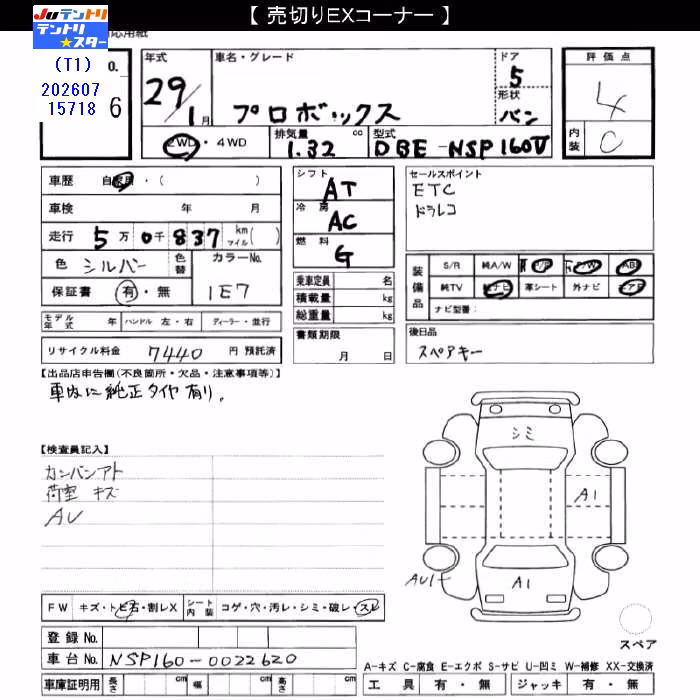 【 売切りEXコーナー 】
JUテントリ
テントリ★スター
応用紙
(T1)
202607
15718
o.
6
年式
29/1月
車名・グレード
プロボックス
ドア
5
形状
バン
評価点
4
内装
C
2WD・4WD
排気量
1.32 cc
型式
DBE-NSP160V
車歴 自家用・( )
車検 年 月
走行 5万0千837 km マイル( )
色 シルバー 色替 カラーNo.
1E7
保証書 有・無
モデル年式 年 ハンドル 左・右 ディーラー・並行
リサイクル料金 7440 円 預託済
シフト
AT
冷房
AC
燃料
G
乗車定員 名
積載量 kg
総重量 kg
書類期限
月 日
セールスポイント
ETC
ドラレコ
装備品
S/R 純A/W P/S P/W ABS
純TV 純ナビ 革シート 外ナビ エアB
ナビ型番:
後日品
スペアキー
【出品店申告欄(不良箇所・欠品・注意事項等)】
車内に純正タイヤ有り。
【検査員記入】
カンバンアト
荷室 キズ
AU
シミ
A1
AU1
A1
FW キズ・トビ石・割レX シート内装 コゲ・穴・汚レ・シミ・破レ・スレ
登録No.
車台No. NSP160-0022620
車庫証明用 長さ cm 幅 cm 高さ cm
スペア
A-キズ C-腐食 E-エクボ S-サビ U-凹ミ W-補修 XX-交換済
工具 有・無 ジャッキ 有・無